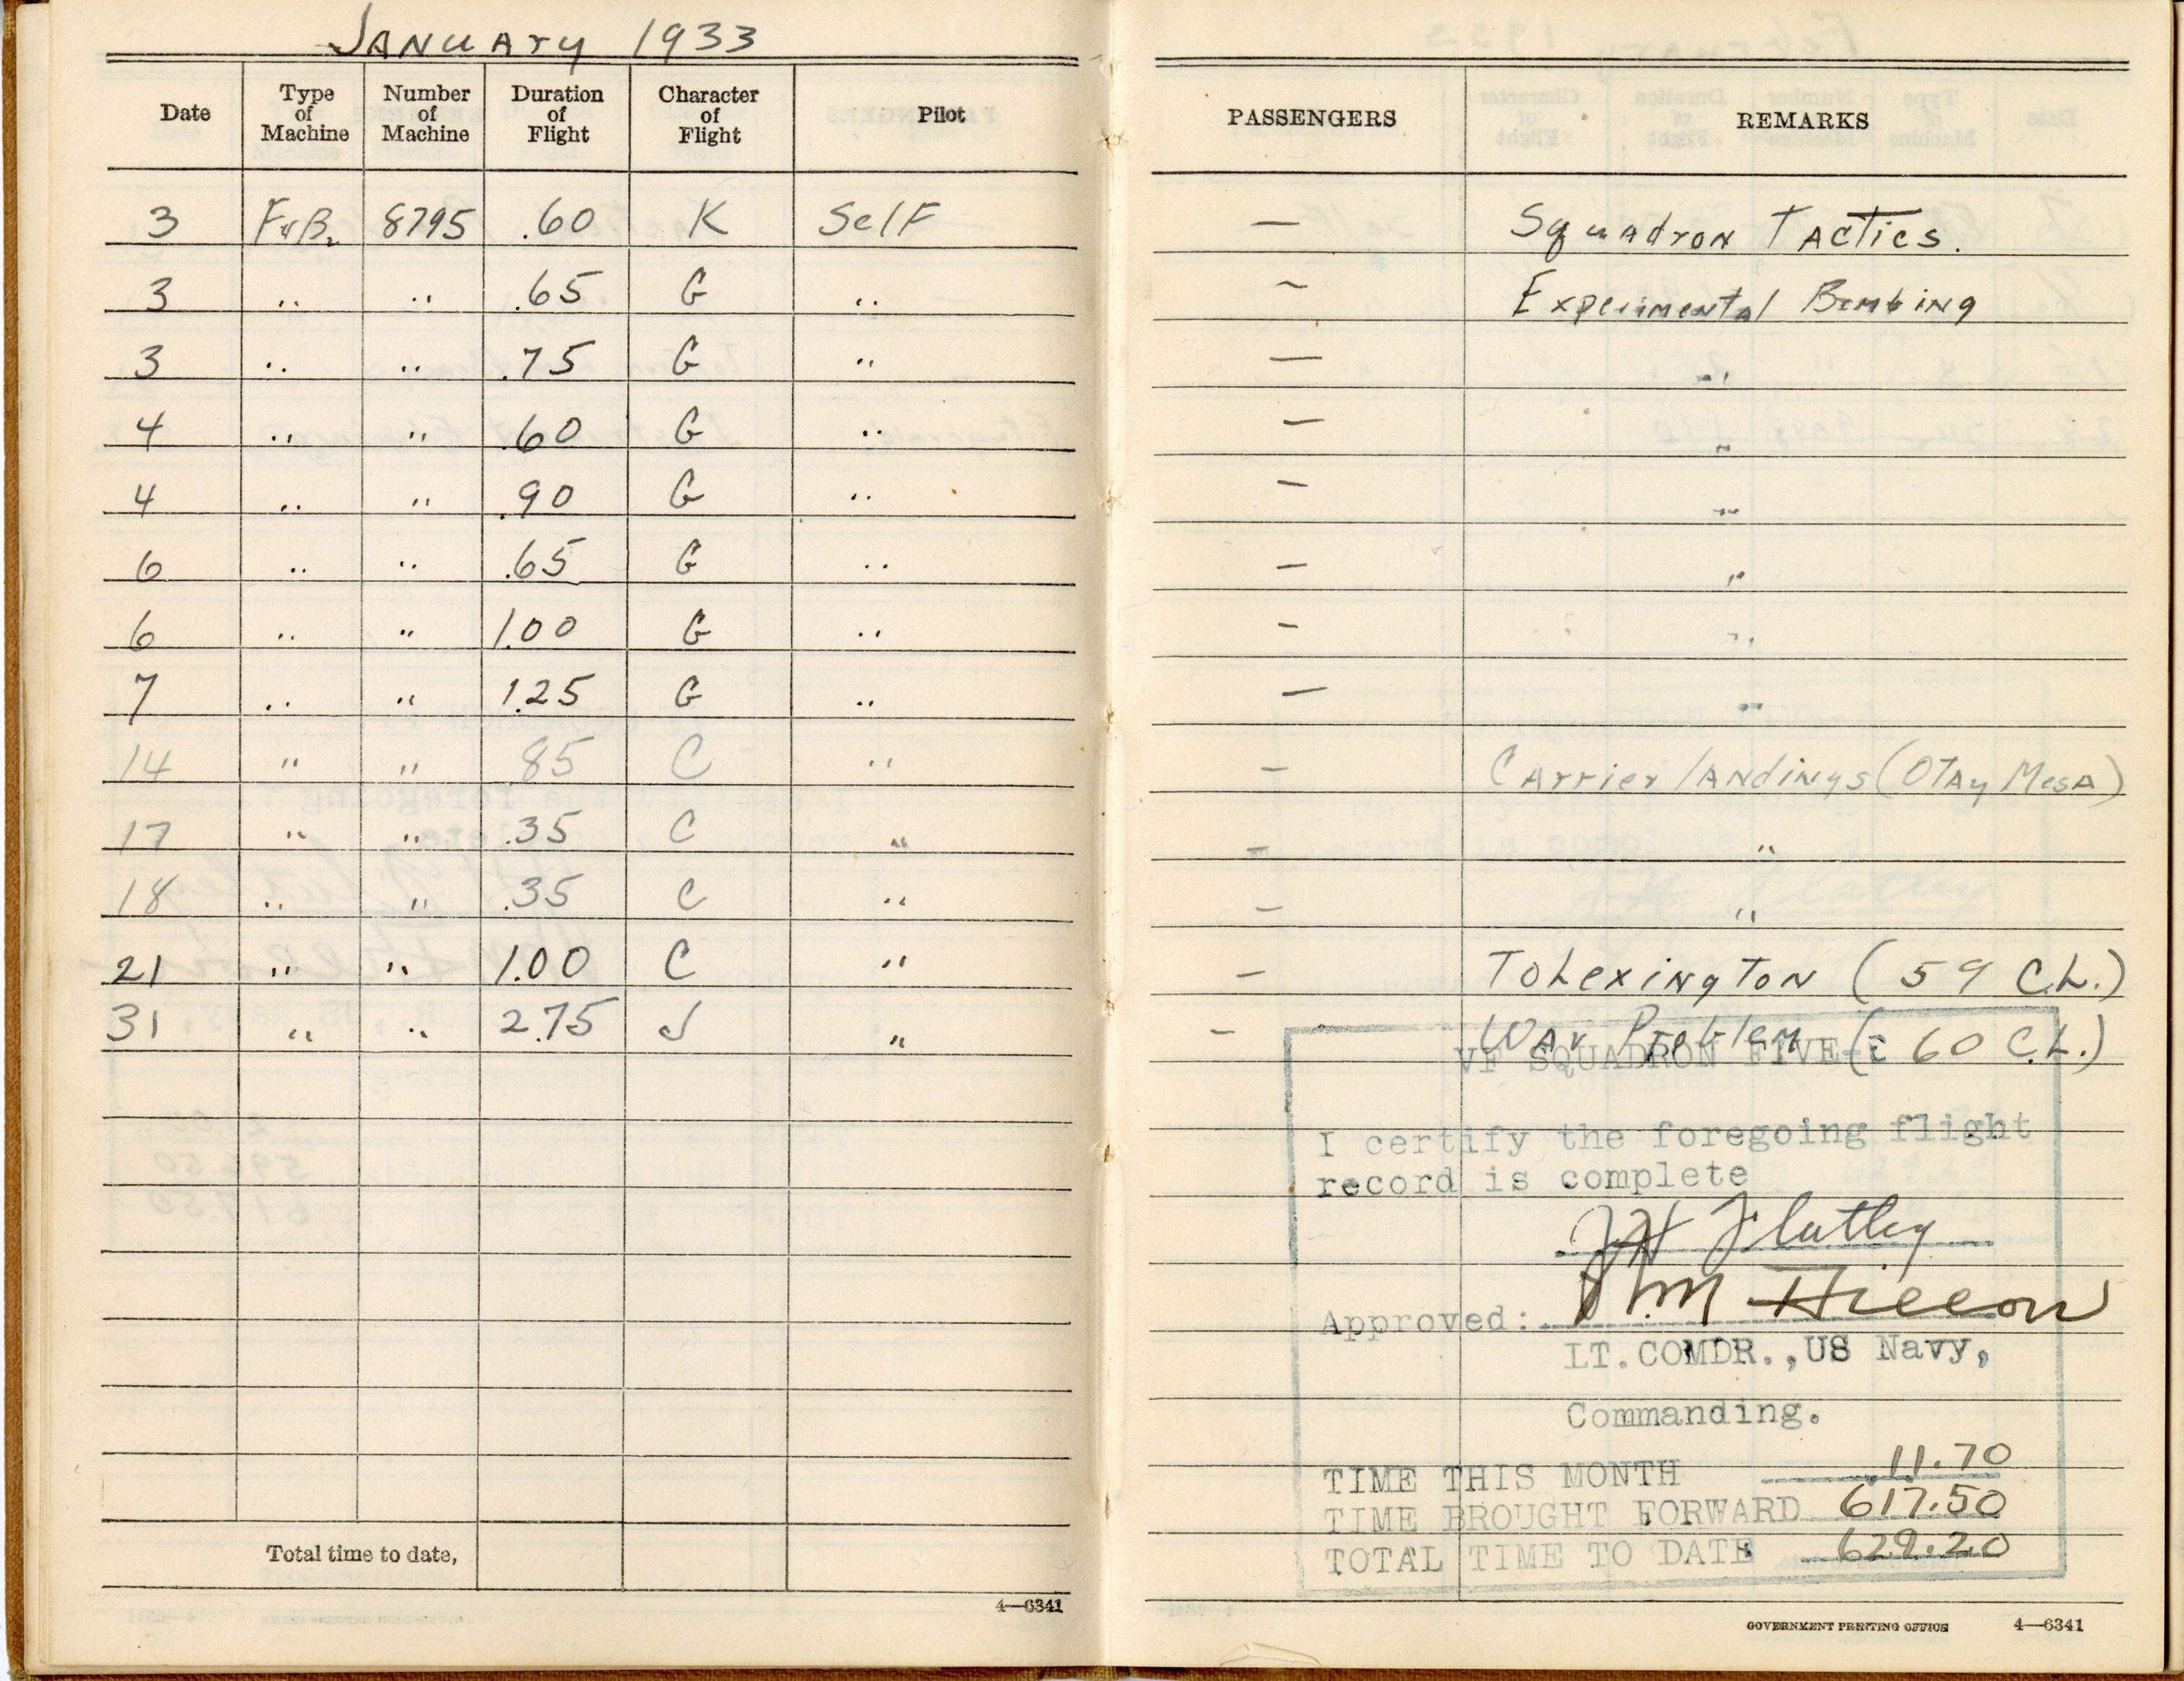 JANUARY 1933
Date Type of Machine Number of Machine Duration of Flight Character of Flight Pilot PASSENGERS REMARKS
3 F4B2 8795 .60 K Self — Squadron Tactics.
3 " " .65 G " — Experimental Bombing
3 " " .75 G " — "
4 " " .60 G " — "
4 " " .90 G " — "
6 " " .65 G " — "
6 " " 1.00 G " — "
7 " " 1.25 G " — "
14 " " 85 C " — Carrier landings (Otay Mesa)
17 " " .35 C " — "
18 " " .35 C " — "
21 " " 1.00 C " — To Lexington (59 C.L.)
31 " " 2.75 J " — War Problem (60 C.L.)
VF SQUADRON FIVE
I certify the foregoing flight
record is complete
JH Flatley
Approved:
LT.COMDR.,US Navy,
Commanding.
TIME THIS MONTH 11.70
TIME BROUGHT FORWARD 617.50
TOTAL TIME TO DATE 629.20
Total time to date,
4—6341
GOVERNMENT PRINTING OFFICE 4—6341